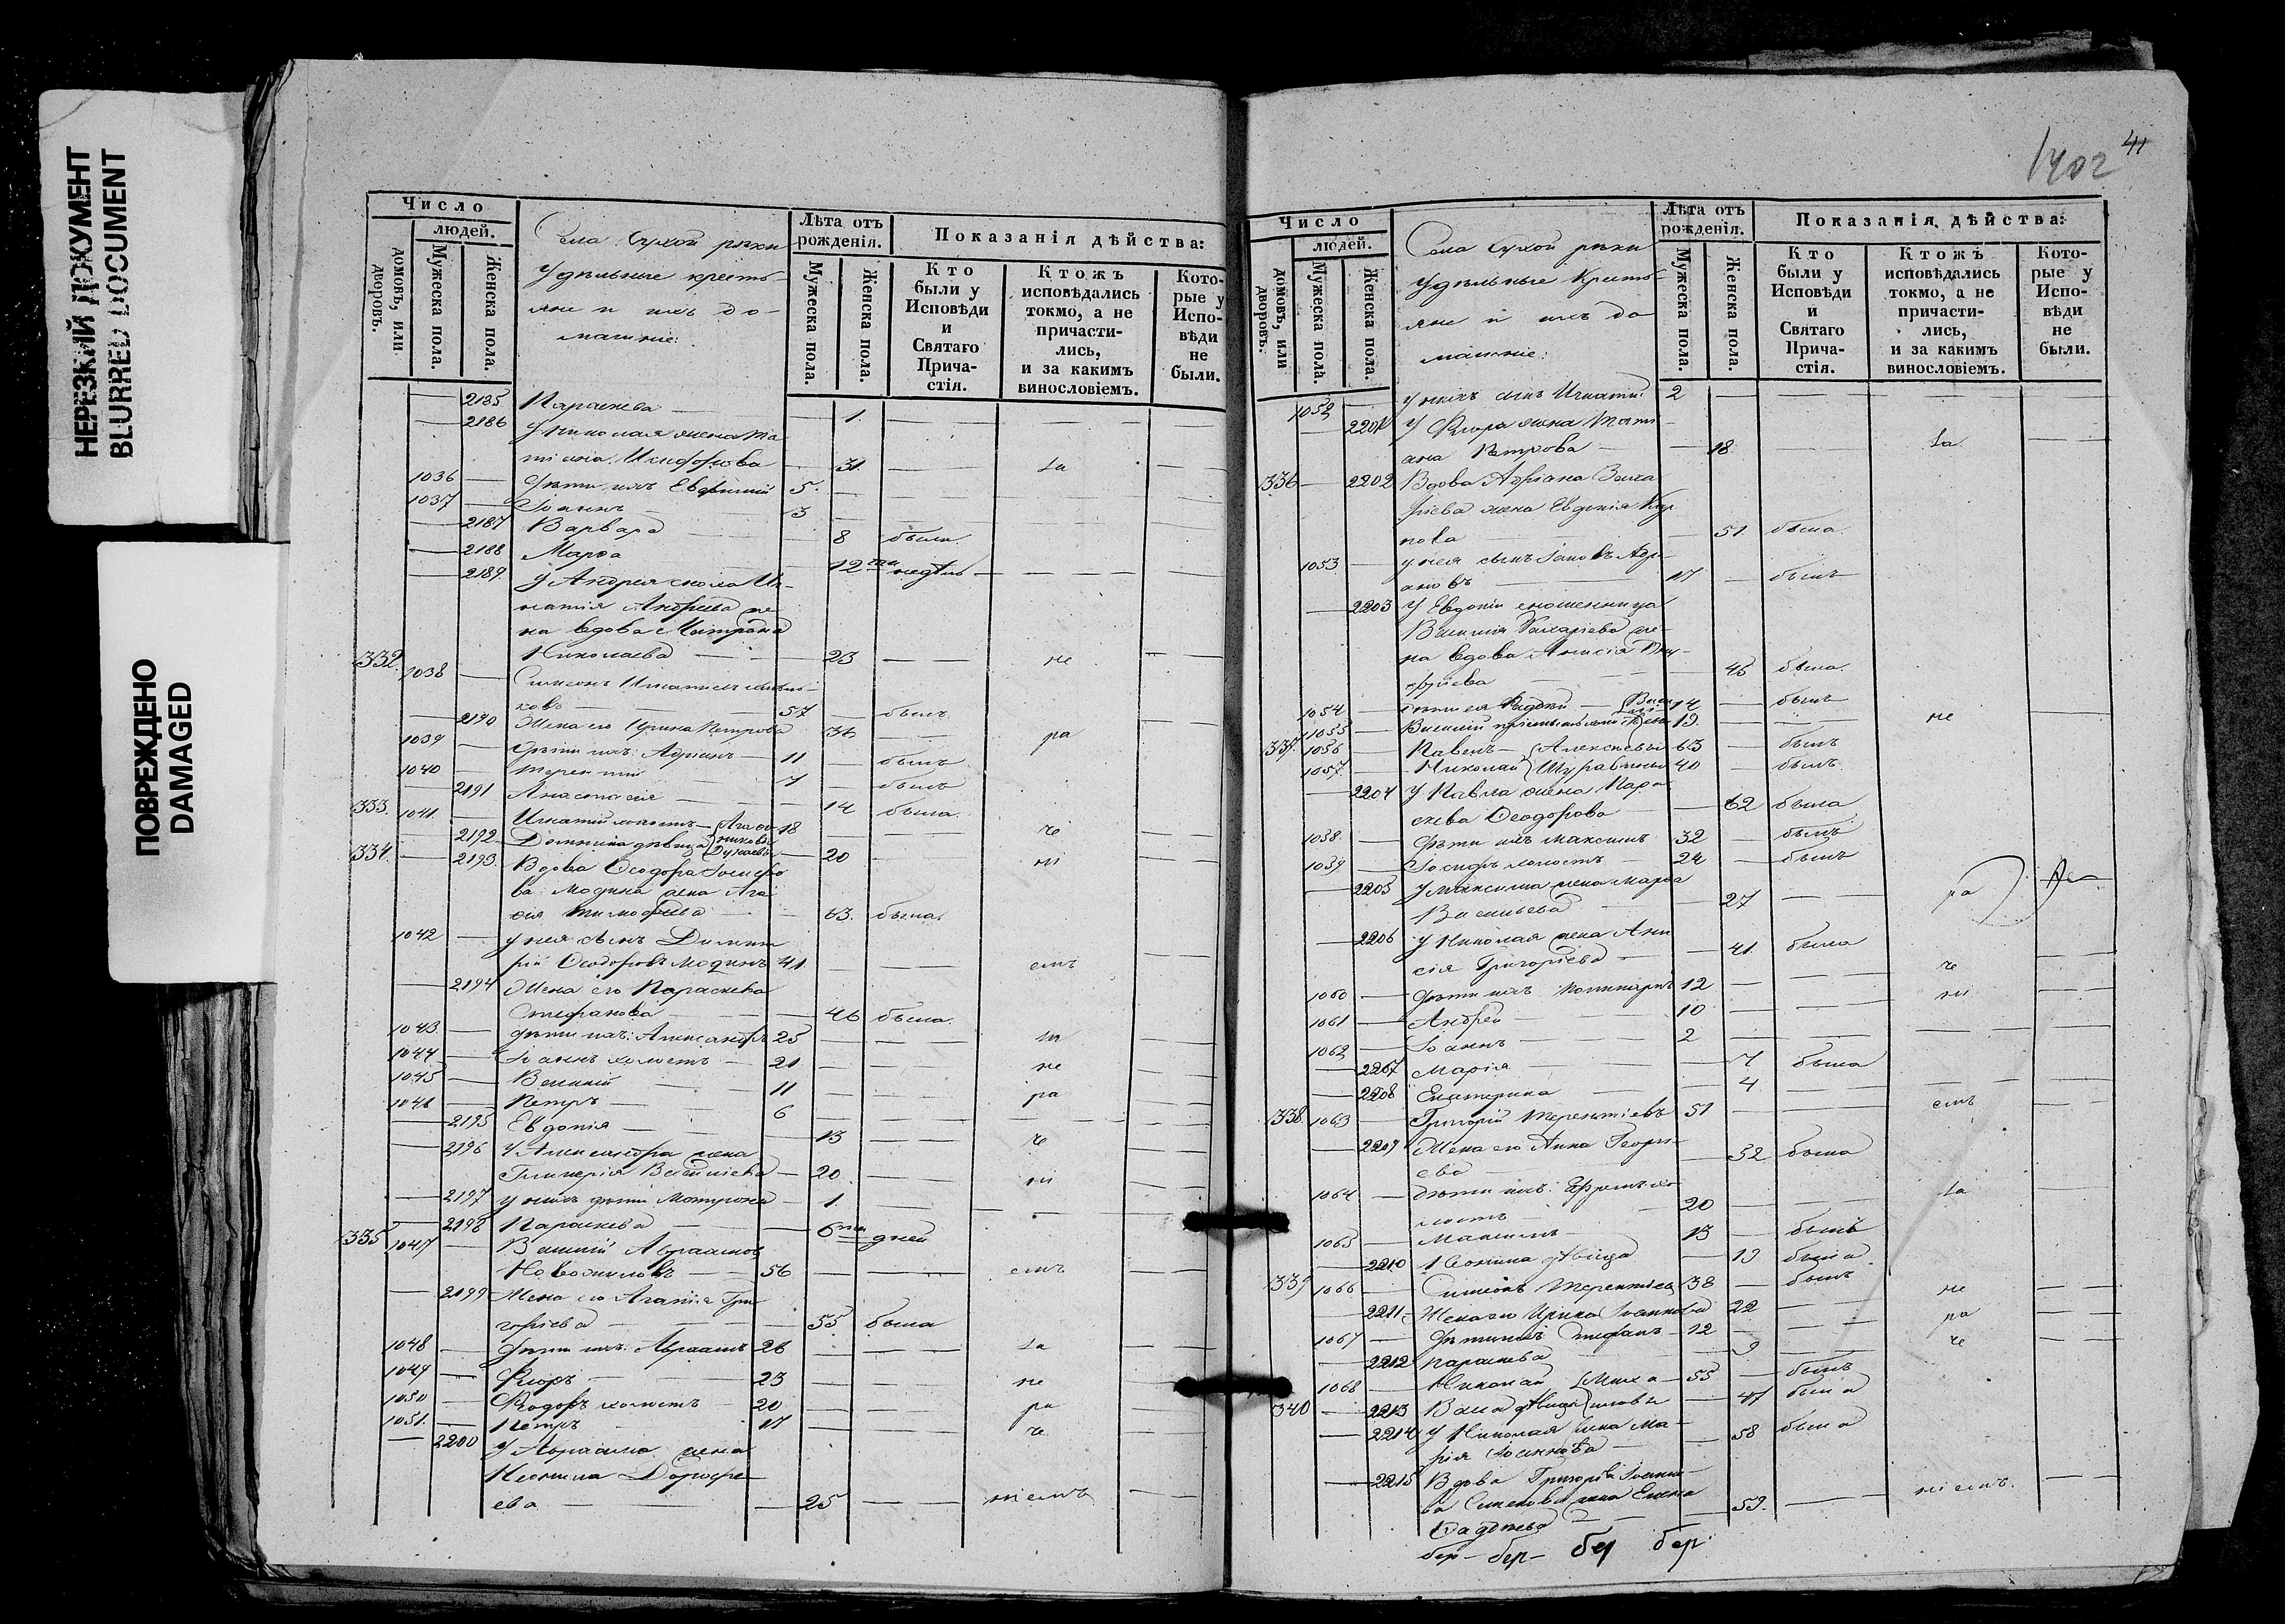 НЕРЕЗКИЙ ДОКУМЕНТ
BLURRED DOCUMENT
ПОВРЕЖДЕНО
DAMAGED
Число
людей.
домовъ, или дворовъ.
Мужеска пола.
Женска пола.
Села Сухой рѣки
Удѣльные кресть-
яне и ихъ до-
машніе:
Лѣта отъ рожденія.
Мужеска пола.
Женска пола.
Показанія дѣйства:
Кто были у Исповѣди и Святаго Прича-стія.
Ктожъ исповѣдались токмо, а не причасти-лись, и за какимъ винословіемъ.
Кото-рые у Испо-вѣди не были.
2185 Параскева 1.
2186 У Николая жена Та
тіана 31 за
1036 Дѣти ихъ Евфимій 5.
1037 Іоаннъ 3
2187 Варвара 8 была.
2188 Марѳа 12ти недѣль
2189. У Андрея сноха Иг-
натія Андреева же
на вдова Матрона
Николаева 23 не
332. 1038 Симеонъ
57 былъ
2190 Жена его Ирина Петрова 36 ра
1039 Дѣти ихъ: Адріанъ 11 былъ
1040 Терентій 7 былъ
2191 Анастасія 14 была.
333. 1041. Игнатій холостъ 18 че
2192 Домникія дѣвица 20 ні
334. 2193. Вдова Ѳеодора
ва Модина жена Ага
ѳія Тимоѳеева 63. была.
1042 у нея сынъ Димит
рій Ѳеодоровъ Модинъ 41 емъ
2194 Жена его Параскева
Стефанова 46 была.
1043. Дѣти ихъ: Александръ 25 за
1044 Іоаннъ холостъ 21 не
1045 Василій 11 ра
1046 Петръ 6
2195 Евдокія 13 че
2196 У Александра жена
Гликерія Васильева 20 ні
2197 у нихъ дѣти Матрона 1.
2198 Параскева 6ти дней
335 1047 Василій Авраамовъ
Новожиловъ 56 емъ
2199 Жена его Агапія Гри
горіева 55 была
1048 Дѣти ихъ: Авраамъ 26 за
1049 Флоръ 23 не
1050 Ѳеодоръ холостъ 20 ра
1051. Петръ 17 че
2200 У Авраама жена
Неонила Дороѳе
ева 25 ніемъ
1402 41
Число
людей.
домовъ, или дворовъ.
Мужеска пола.
Женска пола.
Села Сухой рѣки
Удѣльные Кресть-
яне и ихъ до
машніе:
Лѣта отъ рожденія.
Мужеска пола.
Женска пола.
Показанія дѣйства:
Кто были у Исповѣди и Святаго Прича-стія.
Ктожъ исповѣдались токмо, а не причасти-лись, и за какимъ винословіемъ.
Кото-рые у Испо-вѣди не были.
1052 у нихъ сынъ Игнатій 2
2201 У Флора жена Тати
ана Петрова 18 за
336 2202 Вдова Адріана Заха
ріева жена Евдокія Кар
пова 51 была.
1053 у нея сынъ Іаковъ Адрі-
ановъ 17 былъ
2203 У Евдокіи сношенница
Василія Захаріева же-
на вдова Анисія
46 была.
1054 дѣти ея Фаддей 14 былъ
1055 Василій 13. не
337. 1056 Павелъ Алексѣевы 63 былъ
1057 Николай Шуравины 40 былъ.
2204 У Павла жена Пара
скева Ѳеодорова 62 была
1058. Дѣти ихъ Максимъ 32 былъ
1059 Іосифъ холостъ 24 былъ
2205 У Максима жена Марѳа
Васильева 27 ра
2206 У Николая жена Ани
сія Григоріева 41. была
1060 Дѣти ихъ 12 че
1061 Андрей 10 ні
1062 Іоаннъ 2
2207 Марія 7 была
2208 Екатерина 4
338. 1063 Григорій Терентіевъ 51 емъ
2209 Жена его Анна Георгі-
ева 52 была
1064 Дѣти ихъ: Ефремъ хо
лостъ 20 за
1065 Максимъ 13 былъ
2210 Неонила дѣвица 19 была
339 1066 Симеонъ Терентіевъ 38 былъ
2211 Жена его Ирина Іоаннова 22 не
1067 Дѣти ихъ Стефанъ 12 ра
2212 Параскева 9 че
1068 Николай 55 былъ
340 2213 Васса дѣвица 47 была
2214 У Николая жена Ма-
рія Іоаннова 58 была
2215 Вдова Григорія Іоанно-
ва жена Елена
Фаддеева 59. ніемъ.
бер - бер - бер бер